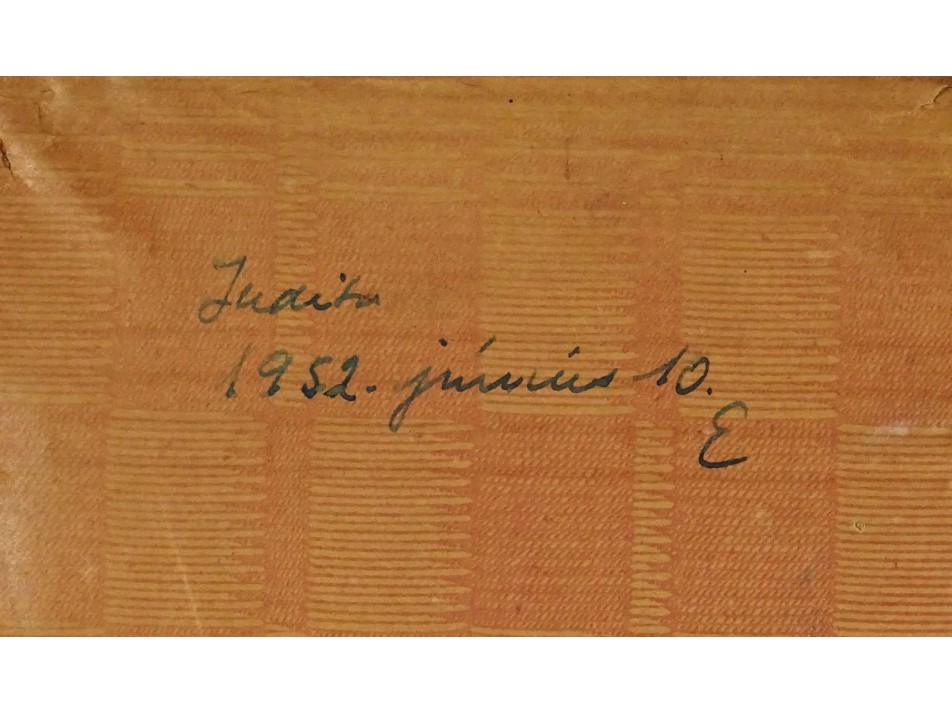 Judita
1952. június 10.
E